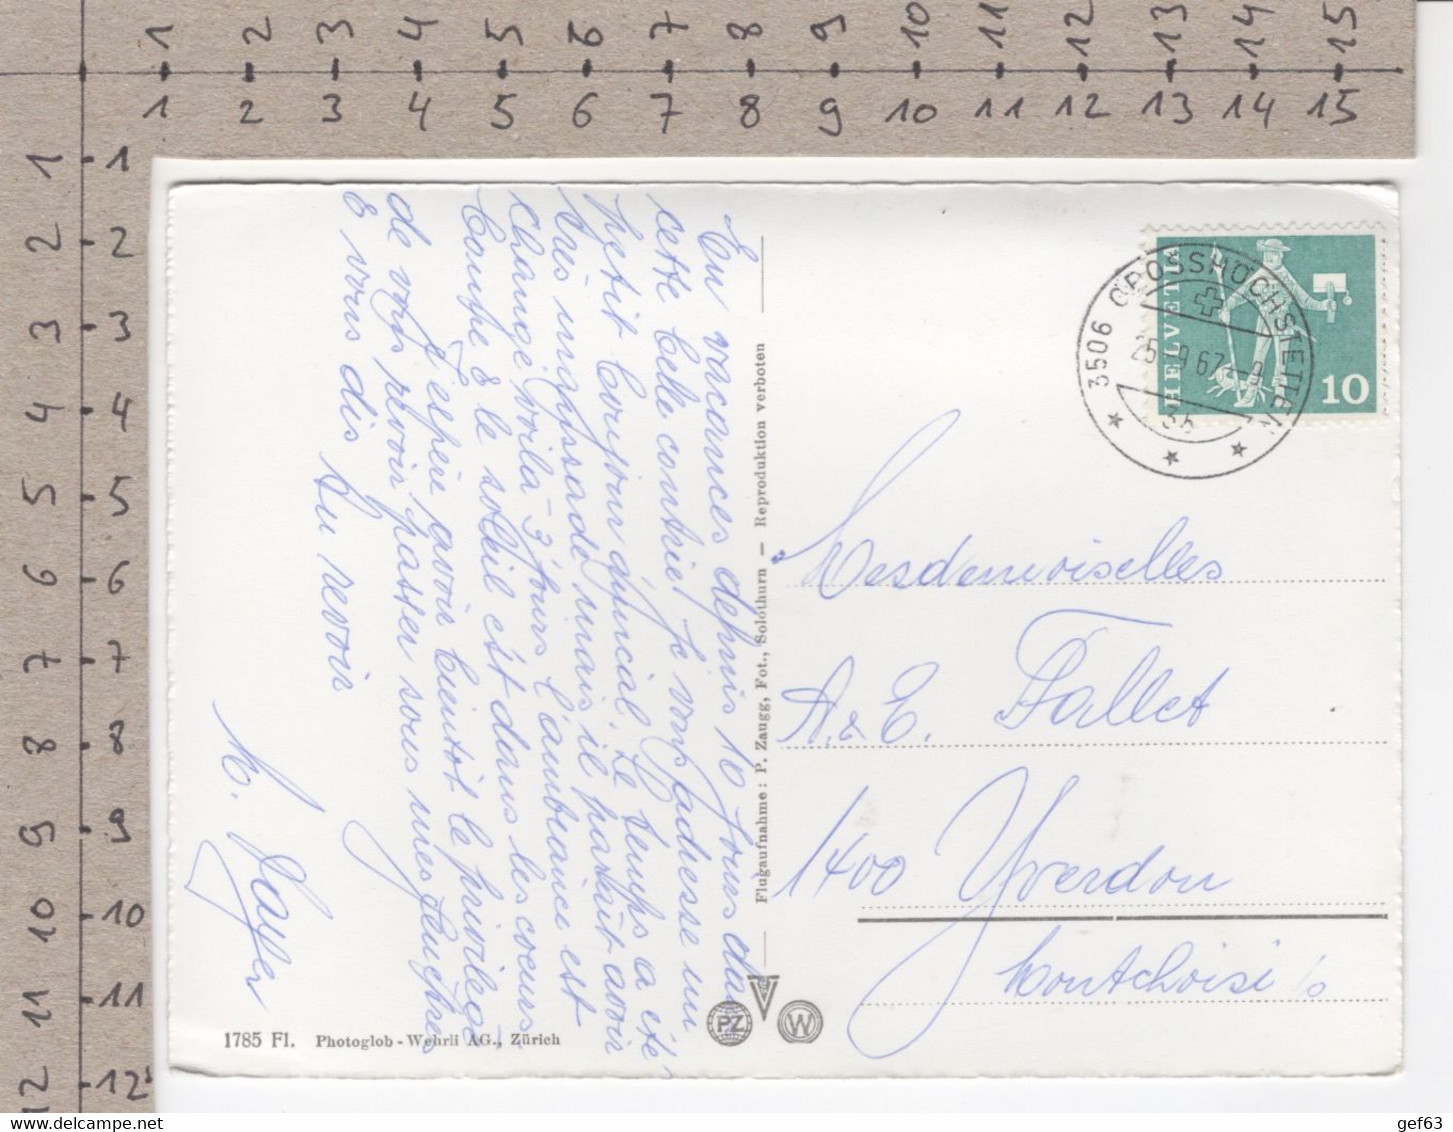 1 2 3 4 5 6 7 8 9 10 11 12 13 14 15
1 2 3 4 5 6 7 8 9 10 11 12 13 14 15
1 2 3 4 5 6 7 8 9 10 11 12
1 2 3 4 5 6 7 8 9 10 11 12
En vacances depuis 10 jours dans
cette belle contrée je vous adresse un
petit bonjour amical. Le temps a été
très maussade mais il paraît avoir
changé voilà 3 jours l'ambiance est
bonne & le soleil est dans les coeurs.
J'espère avoir bientôt le privilège
de vous revoir passer sous mes fenêtres
& vous dis
Au revoir
M. Jayer
Flugaufnahme: P. Zaugg, Fot., Solothurn — Reproduktion verboten
HELVETIA
10
3506 GROSSHÖCHSTETTEN
25.-9 67-
Mesdemoiselles
A. & E. Fallet
1400 Yverdon
Montchoisi
PZ W
1785 Fl. Photoglob - Wehrli AG., Zürich
delcampe.net
gef63